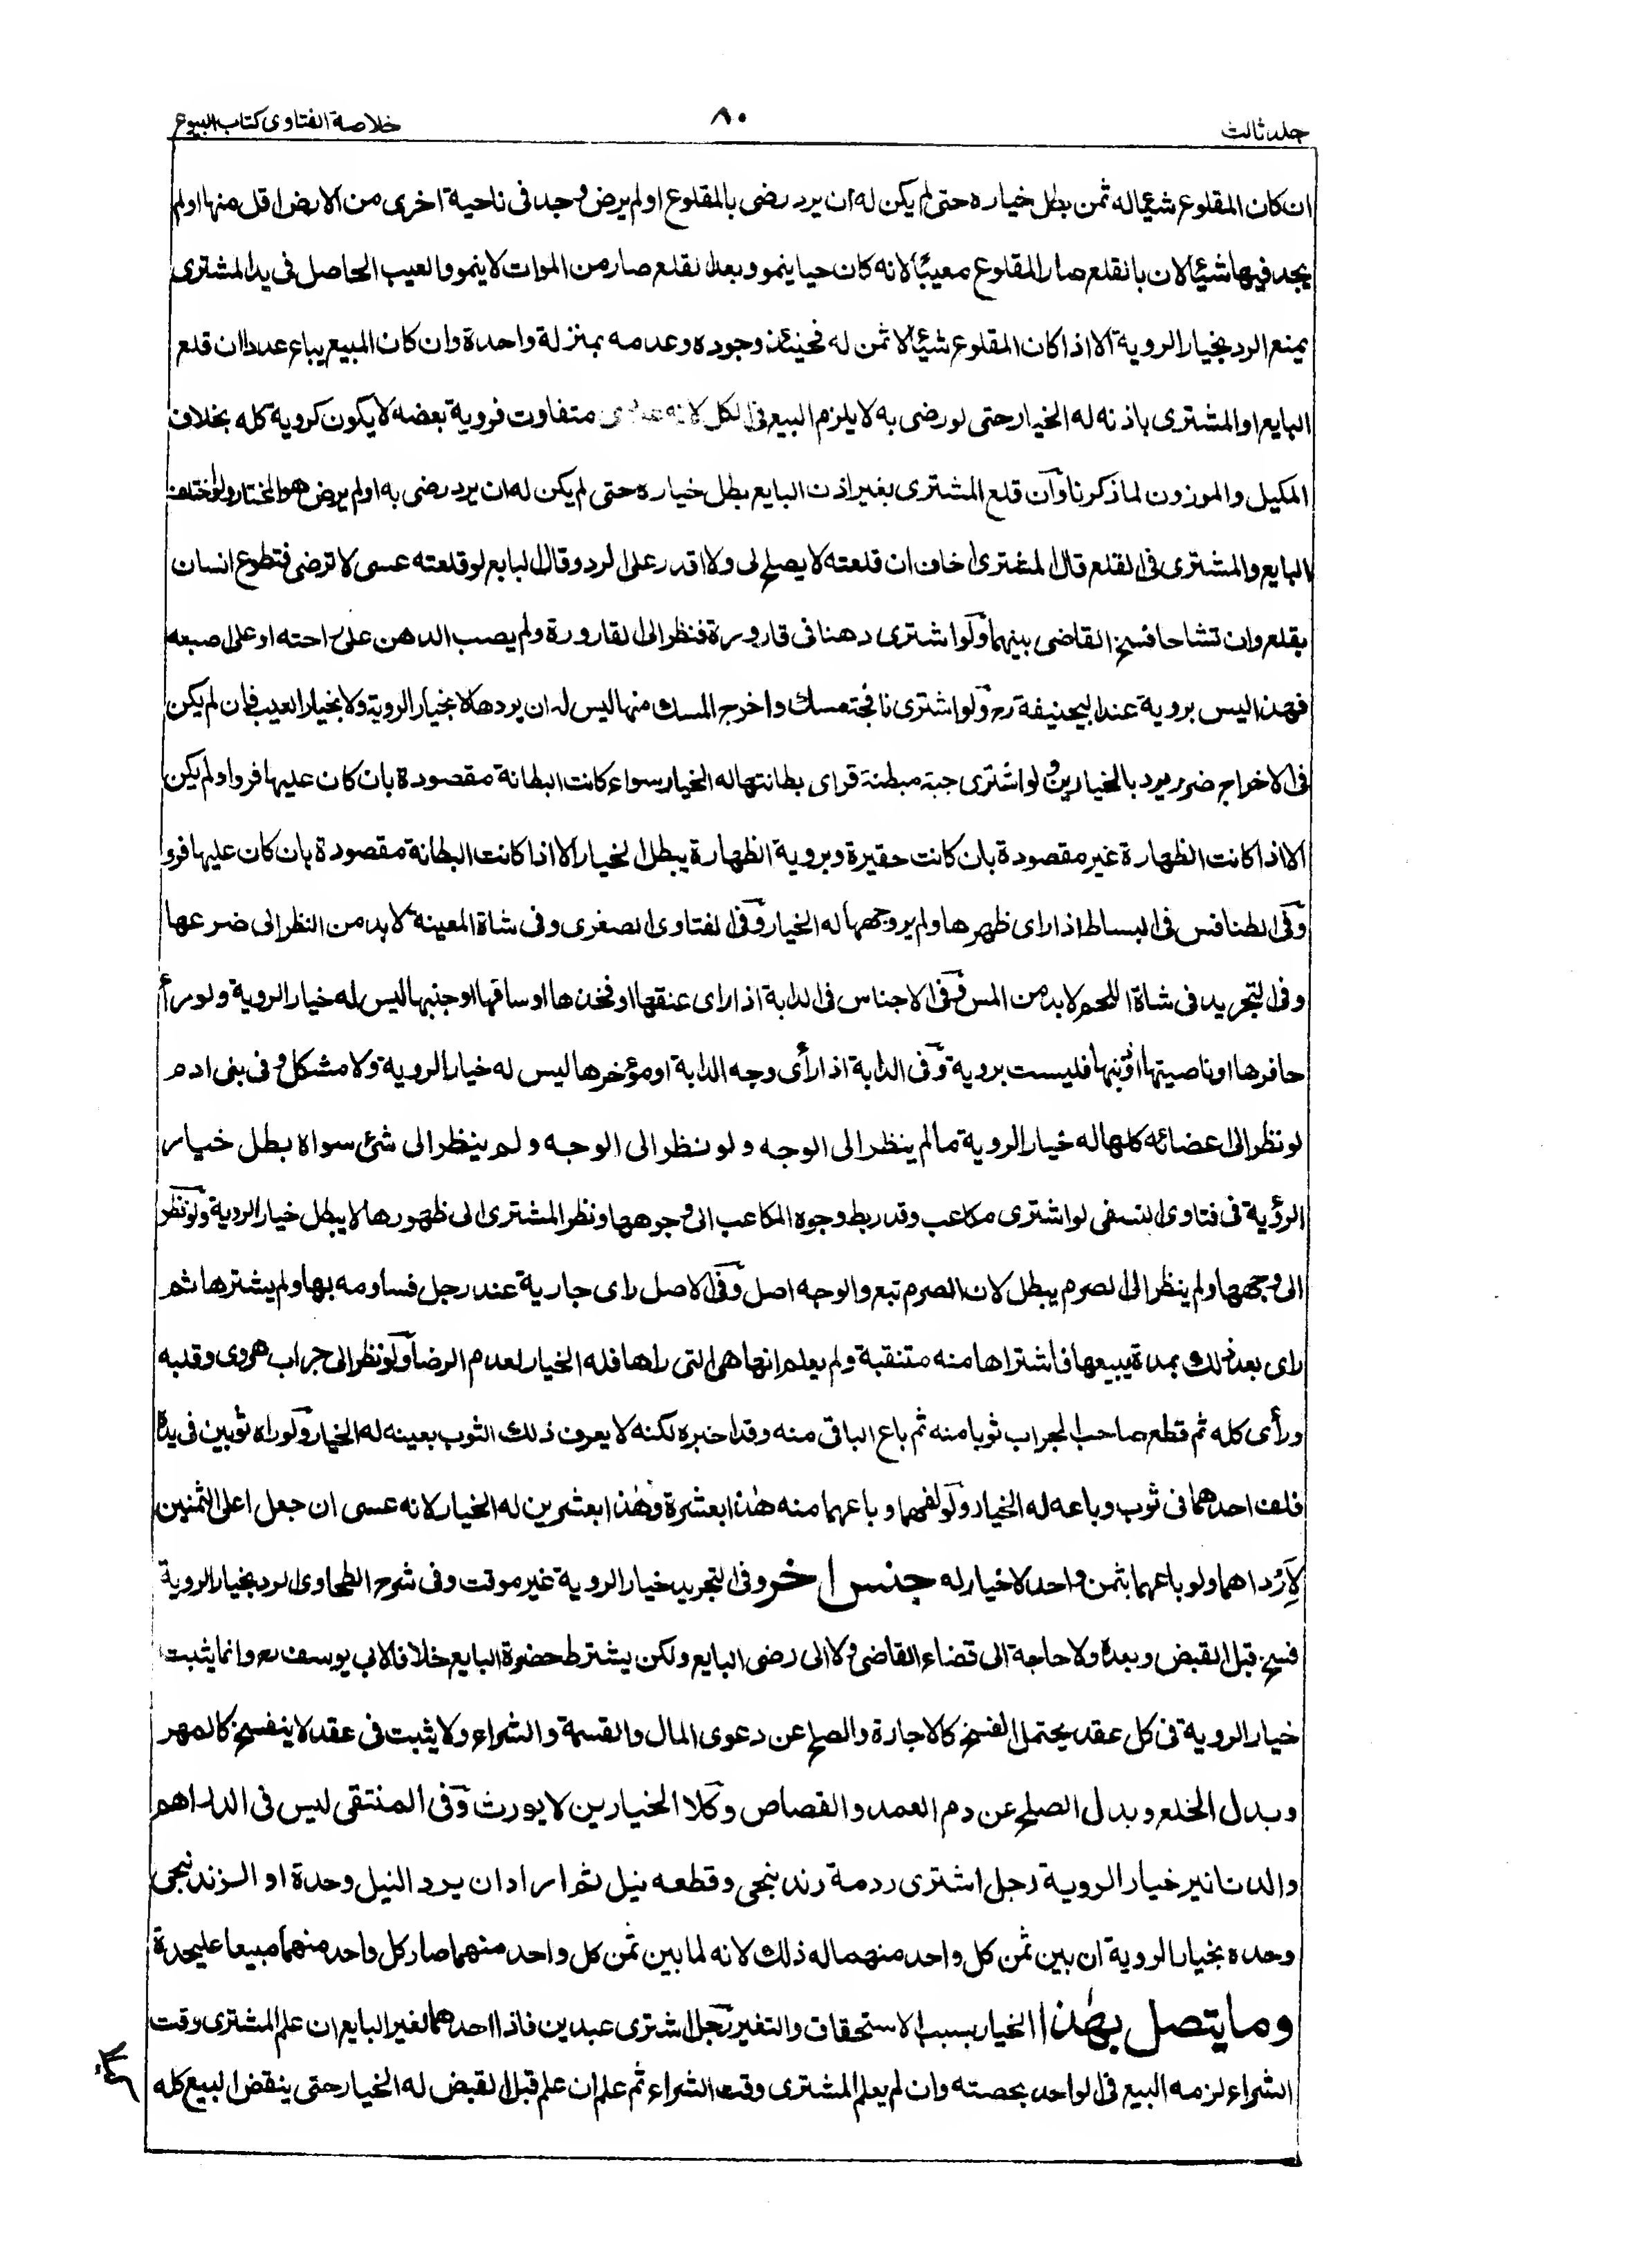 جلد ثالث
٨٠
خلاصة الفتاوى كتاب البيوع
ان كان المقلوع شيئا له ثمن بطل خياره حتى لم يكن له ان يرد رضى بالمقلوع او لم يرض وجد فى ناحية اخرى من الارض اقل منها او لم
يجد فيها شيئا لان بالقلع صار المقلوع معيبًا لانه كان حيا ينمو وبعد القلع صار من الموات لا ينمو والعيب الحاصل فى يد المشترى
يمنع الرد بخيار الروية الا اذا كان المقلوع شيئًا لا ثمن له فحينئذ وجوده وعدمه بمنزلة واحدة وان كان المبيع يباع عددا ان قلع
البايع او المشترى باذنه له الخيار حتى لو رضى به لا يلزم البيع فى الكل لانه عددى متفاوت فروية بعضه لا يكون كروية كله بخلاف
المكيل والموزون لما ذكرنا وان قلع المشترى بغير اذن البايع بطل خياره حتى لم يكن له ان يرد رضى به او لم يرض هو المختار ولو اختلف
البايع والمشترى فى القلع قال المشترى اخاف ان قلعته لا يصلح لى ولا اقدر على الرد وقال البايع لو قلعته عسى لا ترضى فتطوع انسان
بقلع وان تشاحا فسخ القاضى بينهما ولو اشترى دهنا فى قارورة فنظر الى القارورة ولم يصب الدهن على راحته او على اصبعه
فهذا ليس بروية عند ابيحنيفة رح ولو اشترى نافجة مسك واخرج المسك منها ليس له ان يردها لا بخيار الروية ولا بخيار العيب فان لم يكن
فى الاخراج ضرر يرد بالخيارين ولو اشترى جبة مبطنة فراى بطانتها له الخيار سواء كانت البطانة مقصودة بان كان عليها فرو او لم يكن
الا اذا كانت الظهارة غير مقصودة بان كانت حقيرة وبروية الظهارة يبطل الخيار الا اذا كانت البطانة مقصودة بان كان عليها فرو
وفى الطنافس فى البساط اذا راى ظهرها ولم ير وجهها له الخيار وفى الفتاوى الصغرى وفى شاة المعينة لا بد من النظر الى ضرعها
وفى التجريد فى شاة اللحم لا بد من المس وفى الاجناس فى الدابة اذا راى عنقها او فخذها او ساقها او جنبها ليس له خيار الروية ولو رأ
حافرها او ناصيتها او ذنبها فليست بروية وفى الدابة اذا رأى وجه الدابة او مؤخرها ليس له خيار الروية ولا مشكل وفى بنى ادم
لو نظر الى اعضائه كلها له خيار الروية ما لم ينظر الى الوجه ولو نظر الى الوجه ولم ينظر الى شئ سواه بطل خيار
الرؤية فى فتاوى النسفى لو اشترى مكاعب وقد ربط وجوه المكاعب الى وجوهها ونظر المشترى الى ظهورها لا يبطل خيار الروية ولو نظر
الى وجهها ولم ينظر الى الصرم يبطل لان الصرم تبع والوجه اصل وفى الاصل راى جارية عند رجل فساومه بها ولم يشترها ثم
راى بعد ذلك بمدة يبيعها فاشتراها منه متنقبة ولم يعلم انها هى التى راها فله الخيار لعدم الرضا ولو نظر الى جراب هروى وقلبه
ورأى كله ثم قطع صاحب الجراب ثوبا منه ثم باع الباقى منه وقد اخبره لكنه لا يعرف ذلك الثوب بعينه له الخيار ولو راه ثوبين فى يده
فلف احدهما فى ثوب وباعه له الخيار ولو لفهما وباعهما منه هذا بعشرة وهذا بعشرين له الخيار لانه عسى ان جعل اعلى الثمنين
لأردأهما ولو باعهما بثمن واحد لا خيار له جنس اخر وفى التجريد خيار الروية غير موقت وفى شرح الطحاوى الرد بخيار الروية
فسخ قبل القبض وبعده ولا حاجة الى قضاء القاضى ولا الى رضى البايع ولكن يشترط حضرة البايع خلافا لابى يوسف رح وانما يثبت
خيار الروية فى كل عقد يحتمل الفسخ كالاجارة والصلح عن دعوى المال والقسمة والشراء ولا يثبت فى عقد لا ينفسخ كالمهر
وبدل الخلع وبدل الصلح عن دم العمد والقصاص وكلا الخيارين لا يورث وفى المنتقى ليس فى الدراهم
والدنانير خيار الروية رجل اشترى ردمة زندنيجى وقطعه نيل ثم اراد ان يرد النيل وحدة او الزندنيجى
وحده بخيار الروية ان بين ثمن كل واحد منهما له ذلك لانه لما بين ثمن كل واحد منهما صار كل واحد منهما مبيعا عليحدة
وما يتصل بهذا الخيار بسبب الاستحقاق والتغير رجل اشترى عبدين فاذا احدهما لغير البايع ان علم المشترى وقت
الشراء لزمه البيع فى الواحد بحصته وان لم يعلم المشترى وقت الشراء ثم علم ان علم قبل القبض له الخيار حتى ينقض البيع كله